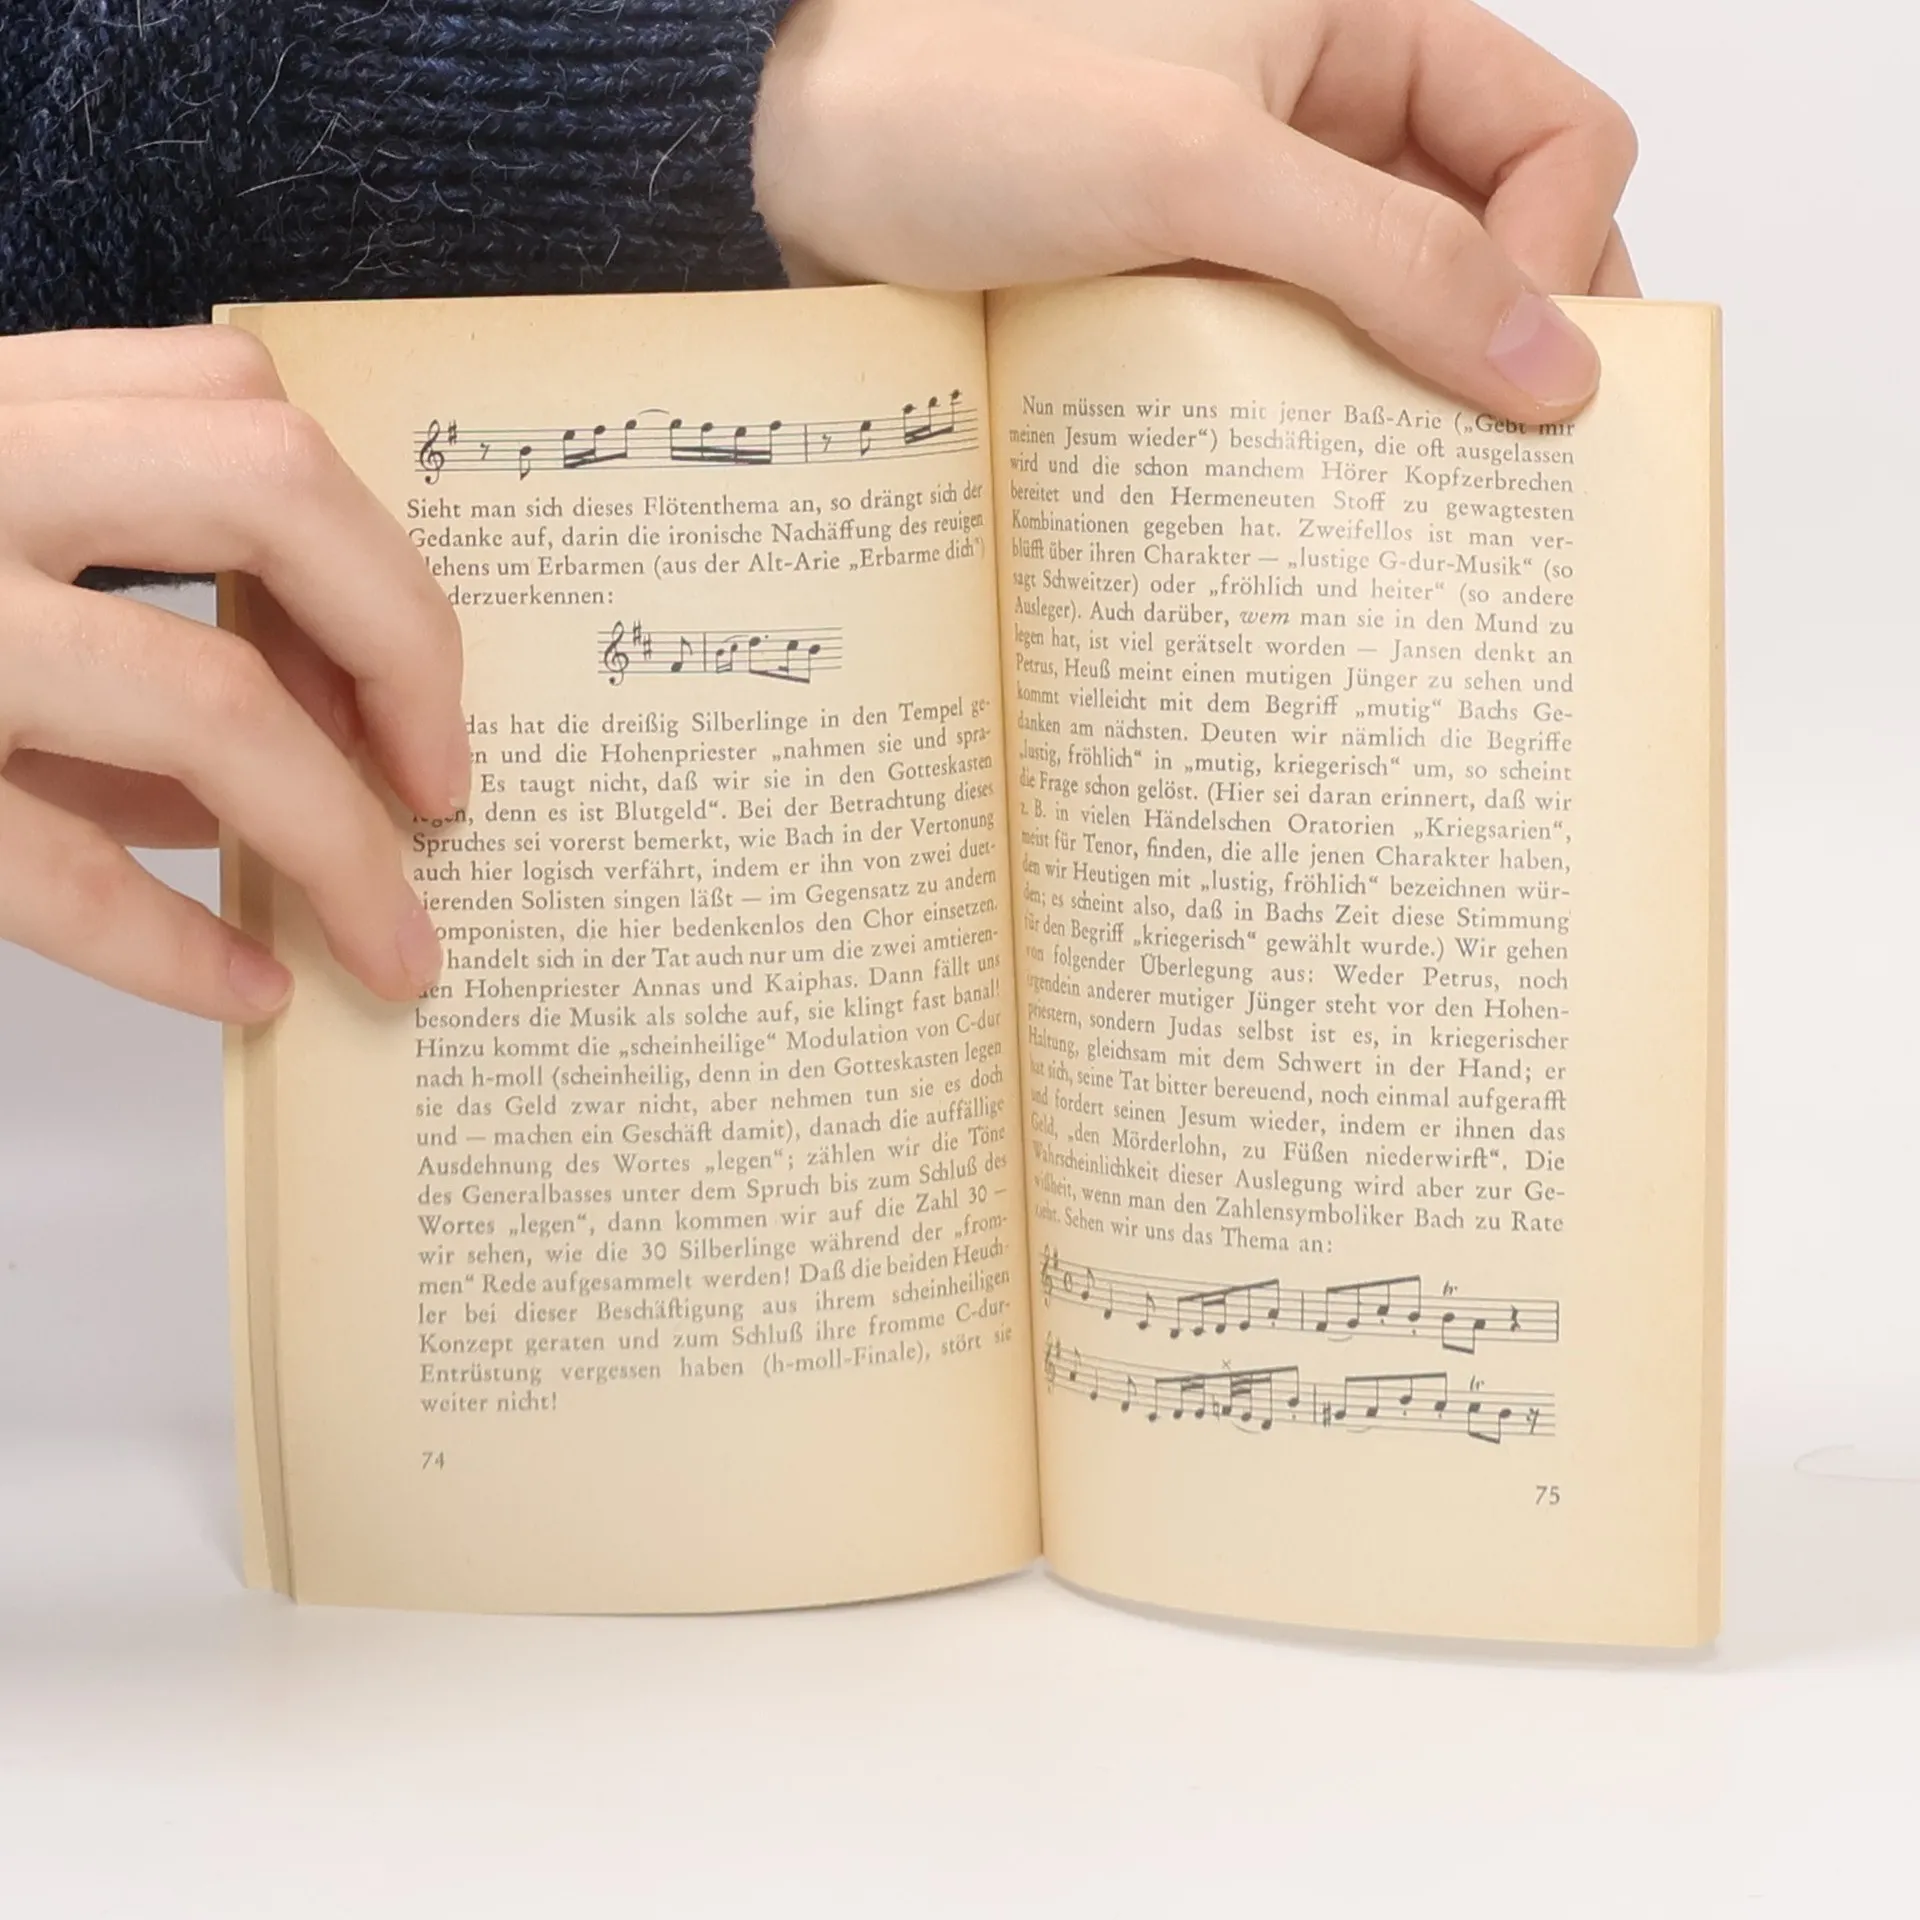 Sieht man sich dieses Flötenthema an, so drängt sich der
Gedanke auf, darin die ironische Nachäffung des reuigen
lehens um Erbarmen (aus der Alt-Arie „Erbarme dich“)
derzuerkennen:
das hat die dreißig Silberlinge in den Tempel ge-
en und die Hohenpriester „nahmen sie und spra-
Es taugt nicht, daß wir sie in den Gotteskasten
legen, denn es ist Blutgeld“. Bei der Betrachtung dieses
Spruches sei vorerst bemerkt, wie Bach in der Vertonung
auch hier logisch verfährt, indem er ihn von zwei duet-
ierenden Solisten singen läßt — im Gegensatz zu andern
omponisten, die hier bedenkenlos den Chor einsetzen.
handelt sich in der Tat auch nur um die zwei amtieren-
den Hohenpriester Annas und Kaiphas. Dann fällt uns
besonders die Musik als solche auf, sie klingt fast banal!
Hinzu kommt die „scheinheilige“ Modulation von C-dur
nach h-moll (scheinheilig, denn in den Gotteskasten legen
sie das Geld zwar nicht, aber nehmen tun sie es doch
und — machen ein Geschäft damit), danach die auffällige
Ausdehnung des Wortes „legen“; zählen wir die Töne
des Generalbasses unter dem Spruch bis zum Schluß des
Wortes „legen“, dann kommen wir auf die Zahl 30 —
wir sehen, wie die 30 Silberlinge während der „from-
men“ Rede aufgesammelt werden! Daß die beiden Heuch-
ler bei dieser Beschäftigung aus ihrem scheinheiligen
Konzept geraten und zum Schluß ihre fromme C-dur-
Entrüstung vergessen haben (h-moll-Finale), stört sie
weiter nicht!
74
Nun müssen wir uns mit jener Baß-Arie („Gebt mir
meinen Jesum wieder“) beschäftigen, die oft ausgelassen
wird und die schon manchem Hörer Kopfzerbrechen
bereitet und den Hermeneuten Stoff zu gewagtesten
Kombinationen gegeben hat. Zweifellos ist man ver-
blüfft über ihren Charakter — „lustige G-dur-Musik“ (so
sagt Schweitzer) oder „fröhlich und heiter“ (so andere
Ausleger). Auch darüber, wem man sie in den Mund zu
legen hat, ist viel gerätselt worden — Jansen denkt an
Petrus, Heuß meint einen mutigen Jünger zu sehen und
kommt vielleicht mit dem Begriff „mutig“ Bachs Ge-
danken am nächsten. Deuten wir nämlich die Begriffe
„lustig, fröhlich“ in „mutig, kriegerisch“ um, so scheint
die Frage schon gelöst. (Hier sei daran erinnert, daß wir
z. B. in vielen Händelschen Oratorien „Kriegsarien“,
meist für Tenor, finden, die alle jenen Charakter haben,
den wir Heutigen mit „lustig, fröhlich“ bezeichnen wür-
den; es scheint also, daß in Bachs Zeit diese Stimmung
für den Begriff „kriegerisch“ gewählt wurde.) Wir gehen
von folgender Überlegung aus: Weder Petrus, noch
irgendein anderer mutiger Jünger steht vor den Hohen-
priestern, sondern Judas selbst ist es, in kriegerischer
Haltung, gleichsam mit dem Schwert in der Hand; er
hat sich, seine Tat bitter bereuend, noch einmal aufgerafft
und fordert seinen Jesum wieder, indem er ihnen das
Geld, „den Mörderlohn, zu Füßen niederwirft“. Die
Wahrscheinlichkeit dieser Auslegung wird aber zur Ge-
wißheit, wenn man den Zahlensymboliker Bach zu Rate
zieht. Sehen wir uns das Thema an:
tr
tr
75